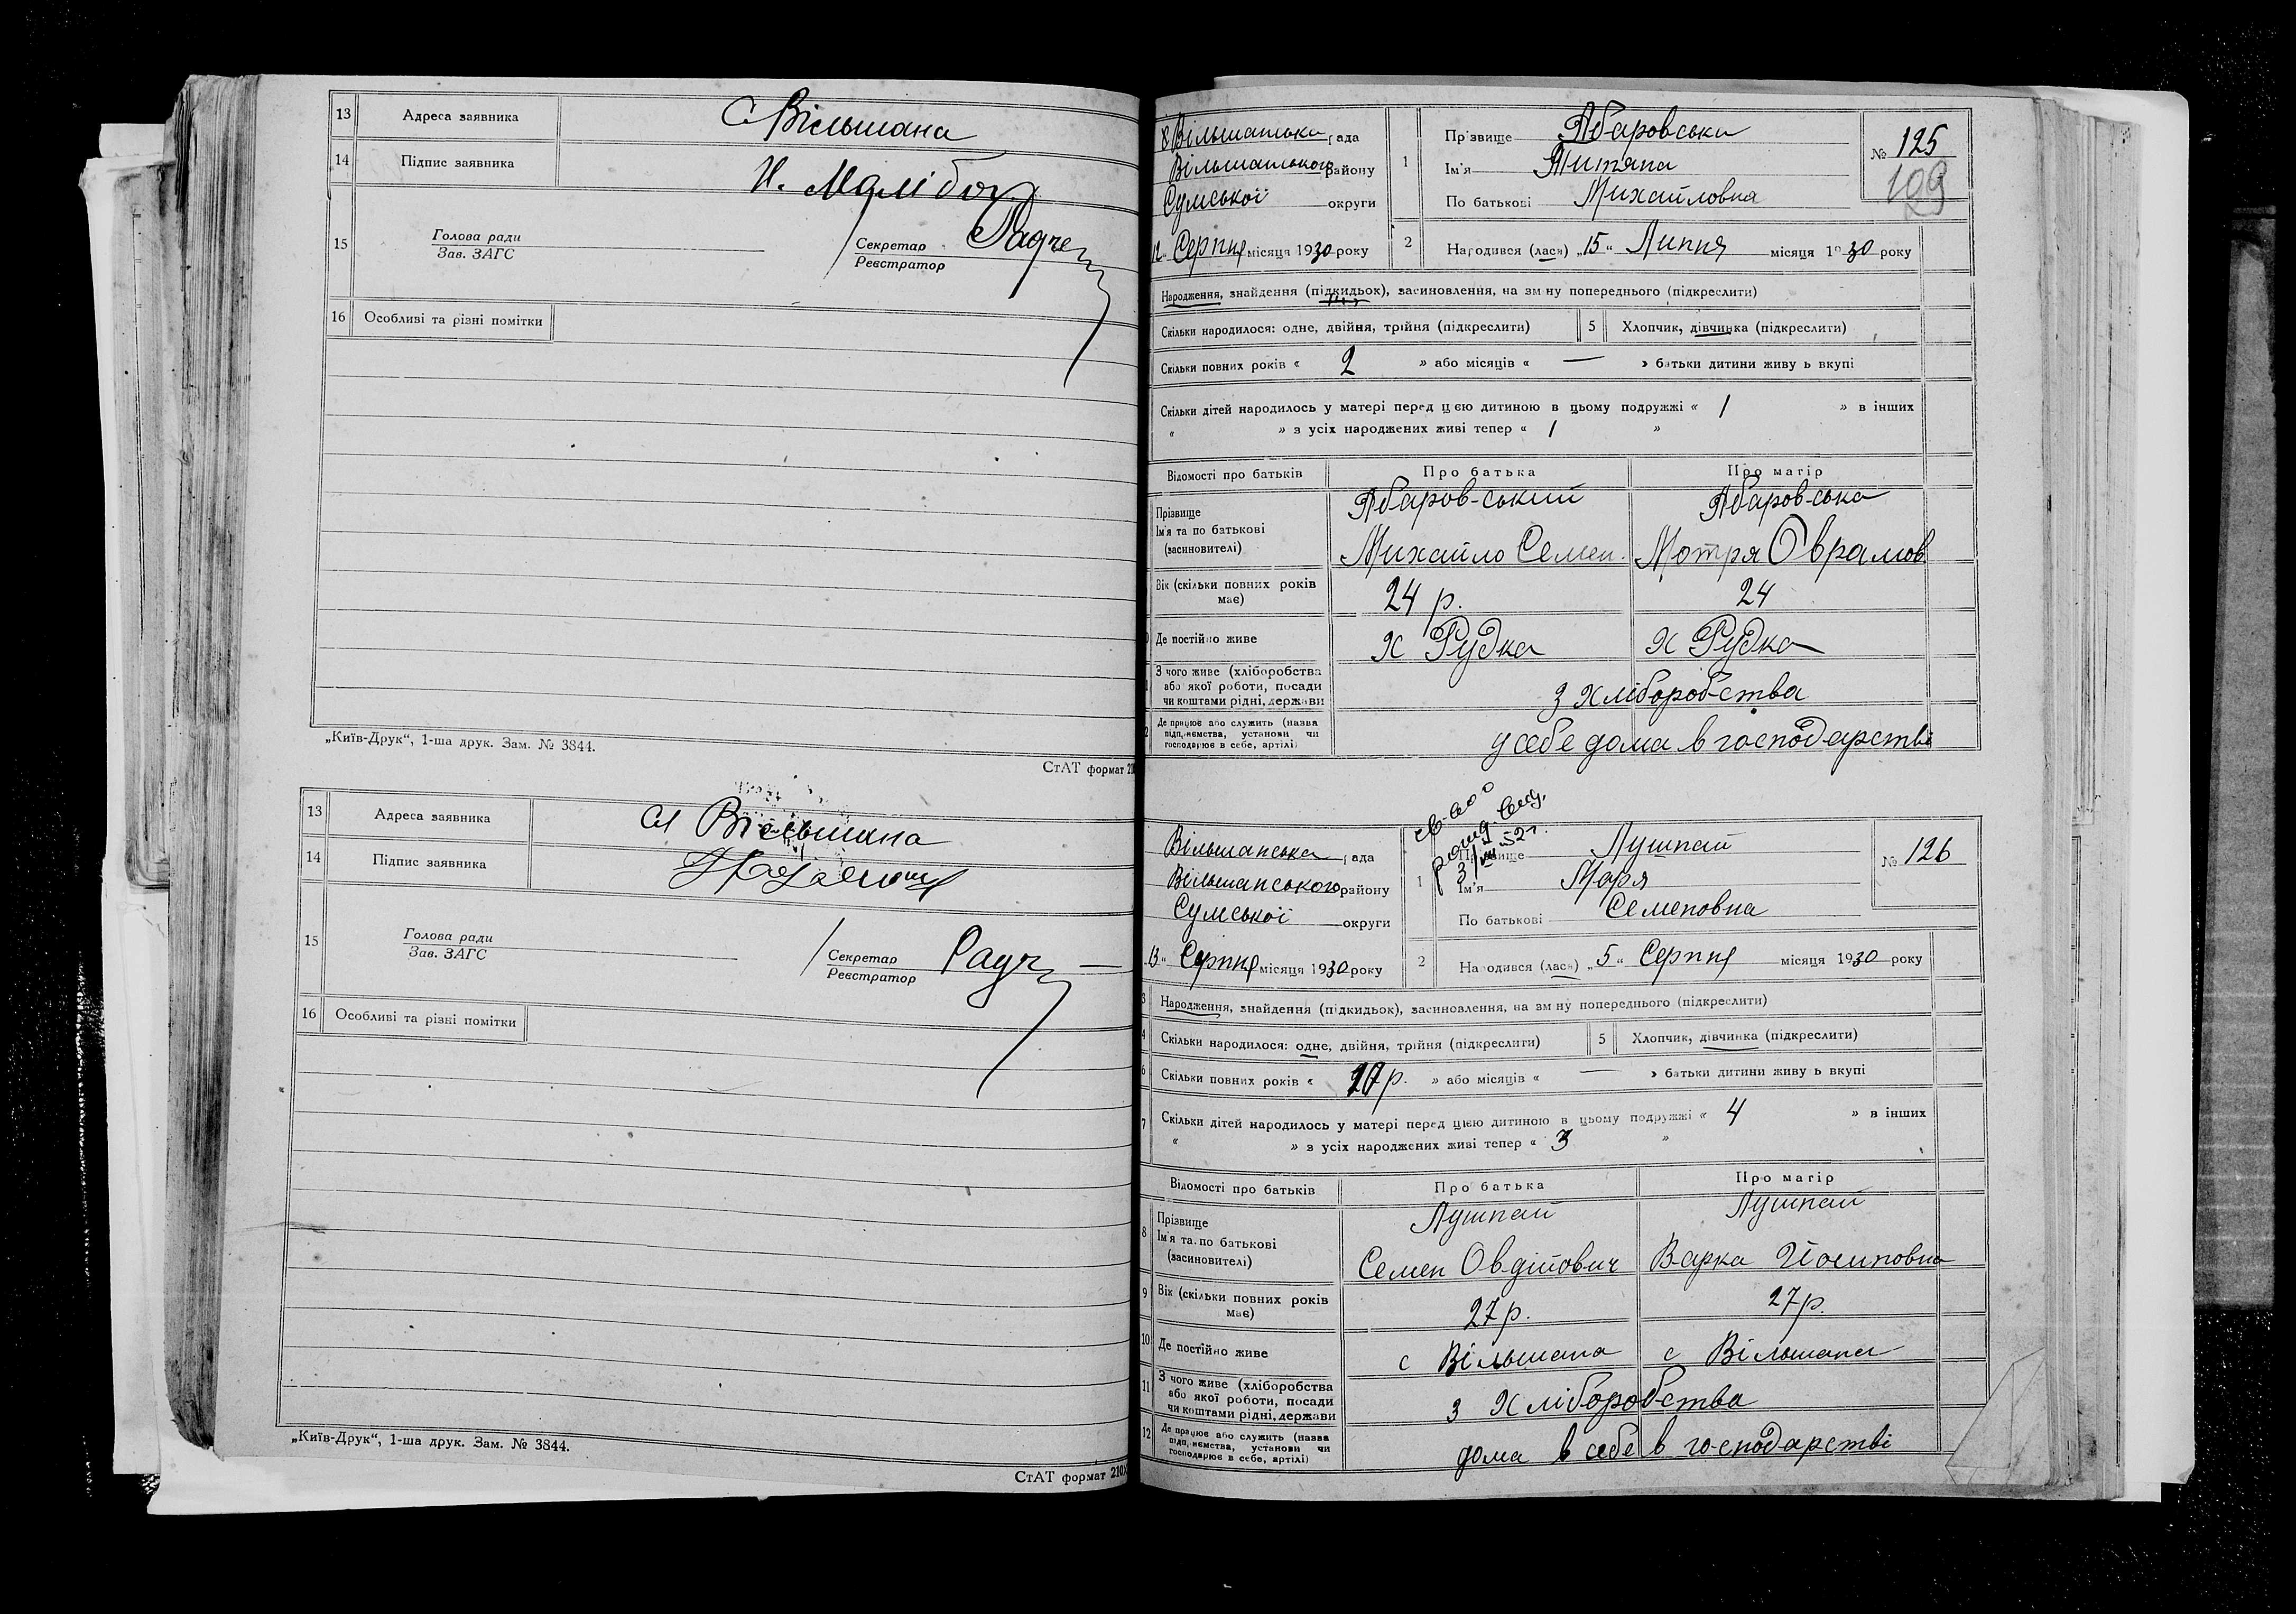 13 Адреса заявника С Вільшана
14 Підпис заявника Н. Малібог
15 Голова ради Секретар
Зав. ЗАГС Реєстратор
16 Особливі та різні помітки
„Київ-Друк“, 1-ша друк. Зам. № 3844.
СтАТ формат 210
13 Адреса заявника сл Вільшана
14 Підпис заявника
15 Голова ради Секретар
Зав. ЗАГС Реєстратор
16 Особливі та різні помітки
„Київ-Друк“, 1-ша друк. Зам. № 3844.
СтАТ формат 210
Вільшанська рада
Вільшанського району
Сумської округи
12 Серпня місяця 1930 року
1 Прізвище Абаровська
Ім'я
По батькові Михайловна
№ 125
109
2 Народився (лася) „15“ Липня місяця 1930 року
Народження, знайдення (підкидьок), засиновлення, на зміну попереднього (підкреслити)
Скільки народилося: одне, двійня, трійня (підкреслити) 5 Хлопчик, дівчинка (підкреслити)
Скільки повних років « 2 » або місяців « — » батьки дитини живуть вкупі
Скільки дітей народилось у матері перед цією дитиною в цьому подружжі « 1 » в інших
« » з усіх народжених живі тепер « 1 »
Відомості про батьків Про батька Про матір
Прізвище Абаров-ський Абаров-ська
Ім'я та по батькові
(засиновителі) Михайло Семен. Мотря Оврамов
Вік (скільки повних років має) 24 р. 24
Де постійно живе х Рудка х Рудка
З чого живе (хліборобства
або якої роботи, посади
чи коштами рідні, держави з хліборобства
Де працює або служить (назва
підприємства, установи чи
господарює в себе, артілі) у себе дома в господарстві
Вільшанська рада
Вільшанського району
Сумської округи
13 Серпня місяця 1930 року
1 Прізвище Лушпай
Ім'я Маря
По батькові Семеновна
№ 126
2 Народився (лася) „5“ Серпня місяця 1930 року
3 Народження, знайдення (підкидьок), засиновлення, на зміну попереднього (підкреслити)
4 Скільки народилося: одне, двійня, трійня (підкреслити) 5 Хлопчик, дівчинка (підкреслити)
6 Скільки повних років « р. » або місяців « — » батьки дитини живуть вкупі
7 Скільки дітей народилось у матері перед цією дитиною в цьому подружжі « 4 » в інших
« » з усіх народжених живі тепер « 3 »
Відомості про батьків Про батька Про матір
8 Прізвище Лушпай Лушпай
Ім'я та по батькові
(засиновителі) Семен Овдійович Варка Йосиповна
9 Вік (скільки повних років має) 27 р. 27 р.
10 Де постійно живе с Вільшана с Вільшана
11 З чого живе (хліборобства
або якої роботи, посади
чи коштами рідні, держави з Хліборобства
12 Де працює або служить (назва
підприємства, установи чи
господарює в себе, артілі) дома в себе в господарстві